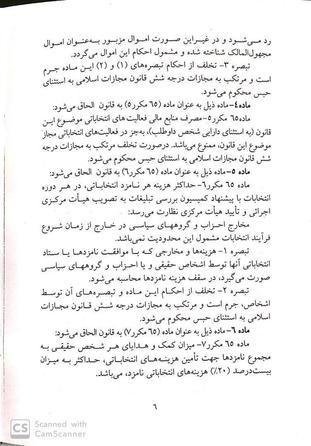 رد می‌شود و در غیر این صورت اموال مزبور به‌عنوان اموال
مجهول‌المالک شناخته شده و مشمول احکام این اموال می‌گردد.
تبصره ۳- تخلف از احکام تبصره‌های (۱) و (۲) این ماده جرم
است و مرتکب به مجازات درجه شش قانون مجازات اسلامی به استثنای
حبس محکوم می‌شود.
ماده۴- ماده ذیل به عنوان ماده (۶۵ مکرر۵) به قانون الحاق می‌شود:
ماده ۶۵ مکرر۵- مصرف منابع مالی فعالیت‌های انتخاباتی موضوع این
قانون (به استثنای دارایی شخص داوطلب)، به‌جز در فعالیت‌های انتخاباتی مجاز
موضوع این قانون، ممنوع می‌باشد. درصورت تخلف مرتکب به مجازات درجه
شش قانون مجازات اسلامی به استثنای حبس محکوم می‌شود.
ماده ۵- ماده ذیل به عنوان ماده (۶۵ مکرر۶) به قانون الحاق می‌شود:
ماده ۶۵ مکرر۶- حداکثر هزینه هر نامزد انتخاباتی، در هر دوره
انتخابات با پیشنهاد کمیسیون بررسی تبلیغات به تصویب هیأت مرکزی
اجرائی و تأیید هیأت مرکزی نظارت می‌رسد:
مخارج احزاب و گروههای سیاسی در خارج از زمان شروع
فرآیند انتخابات مشمول این محدودیت نمی‌باشد.
تبصره ۱- هزینه‌ها و مخارجی که با موافقت نامزدها یا ستاد
انتخاباتی آنها توسط اشخاص حقیقی و یا احزاب و گروههای سیاسی
صورت می‌گیرد، در سقف هزینه نامزدها محاسبه می‌شود.
تبصره ۲- تخلف از احکام این ماده و تبصره‌های آن توسط
اشخاص، جرم است و مرتکب به مجازات درجه شش قانون مجازات
اسلامی به استثنای حبس محکوم می‌شود.
ماده ۶- ماده ذیل به عنوان ماده (۶۵ مکرر۷) به قانون الحاق می‌شود:
ماده ۶۵ مکرر۷- میزان کمک و هدایای هر شخص حقیقی به
مجموع نامزدها جهت تأمین هزینه‌های انتخاباتی، حداکثر به میزان
بیست‌درصد (۲۰٪) هزینه‌های انتخاباتی نامزد، می‌باشد.
۶
CS Scanned with
CamScanner